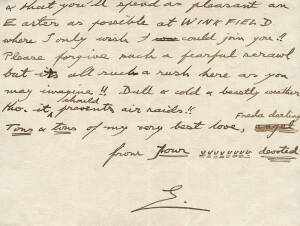 & that you'll spend as pleasant an
Easter as possible at WINKFIELD
where I only wish I could join you!!
Please forgive such a fearful scrawl
but it's all such a rush here as you
may imagine!! Dull & cold & beastly weather
tho' it should prevents air raids!!
Tons & tons of my very best love, Freda darling
from your devoted
E.